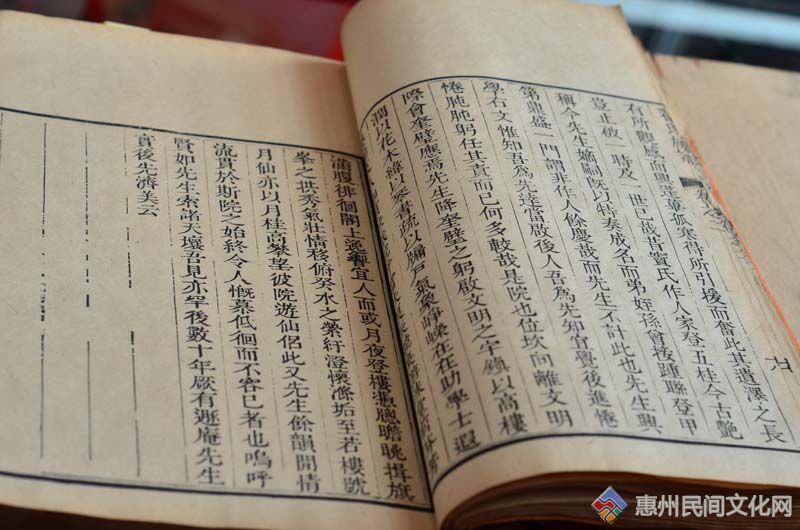 有所觀感而興蓬蓽孤寒得所引援而奮此其遺澤之長
豈止破一時及一世已哉昔竇氏作人家登五桂今古艷
稱今先生嫡嗣既以特奏成名而弟姪孫曾接踵聯登甲
第鼎盛一門謂非作人餘慶哉而先生不計此也先生興
學右文惟知吾為先達當啟後人吾為先知宜覺後進惓
惓肫肫躬任其責而已何多哉是院也位坎向離文明
際會奎璧應焉先生降奎璧之躬啟文明之宇鎮以高樓
潤以花木緯以琴書疏以牖戶氣象崢嶸在在助學士遐
滿腹徘徊閣上逸響宜人而或月夜登樓憑牕瞻眺揖旗
峯之拱秀氣壯情移俯癸水之縈紆澄懷滌垢至若樓號
月仙亦以月桂高攀望彼院遊仙侶此又先生餘韻閒情
流貫於斯院之始終令人慨慕低徊而不容已者也嗚呼
賢如先生索諸天壤吾見亦罕後數十年厥有遯庵先生
實後先濟美云
惠州民间文化网